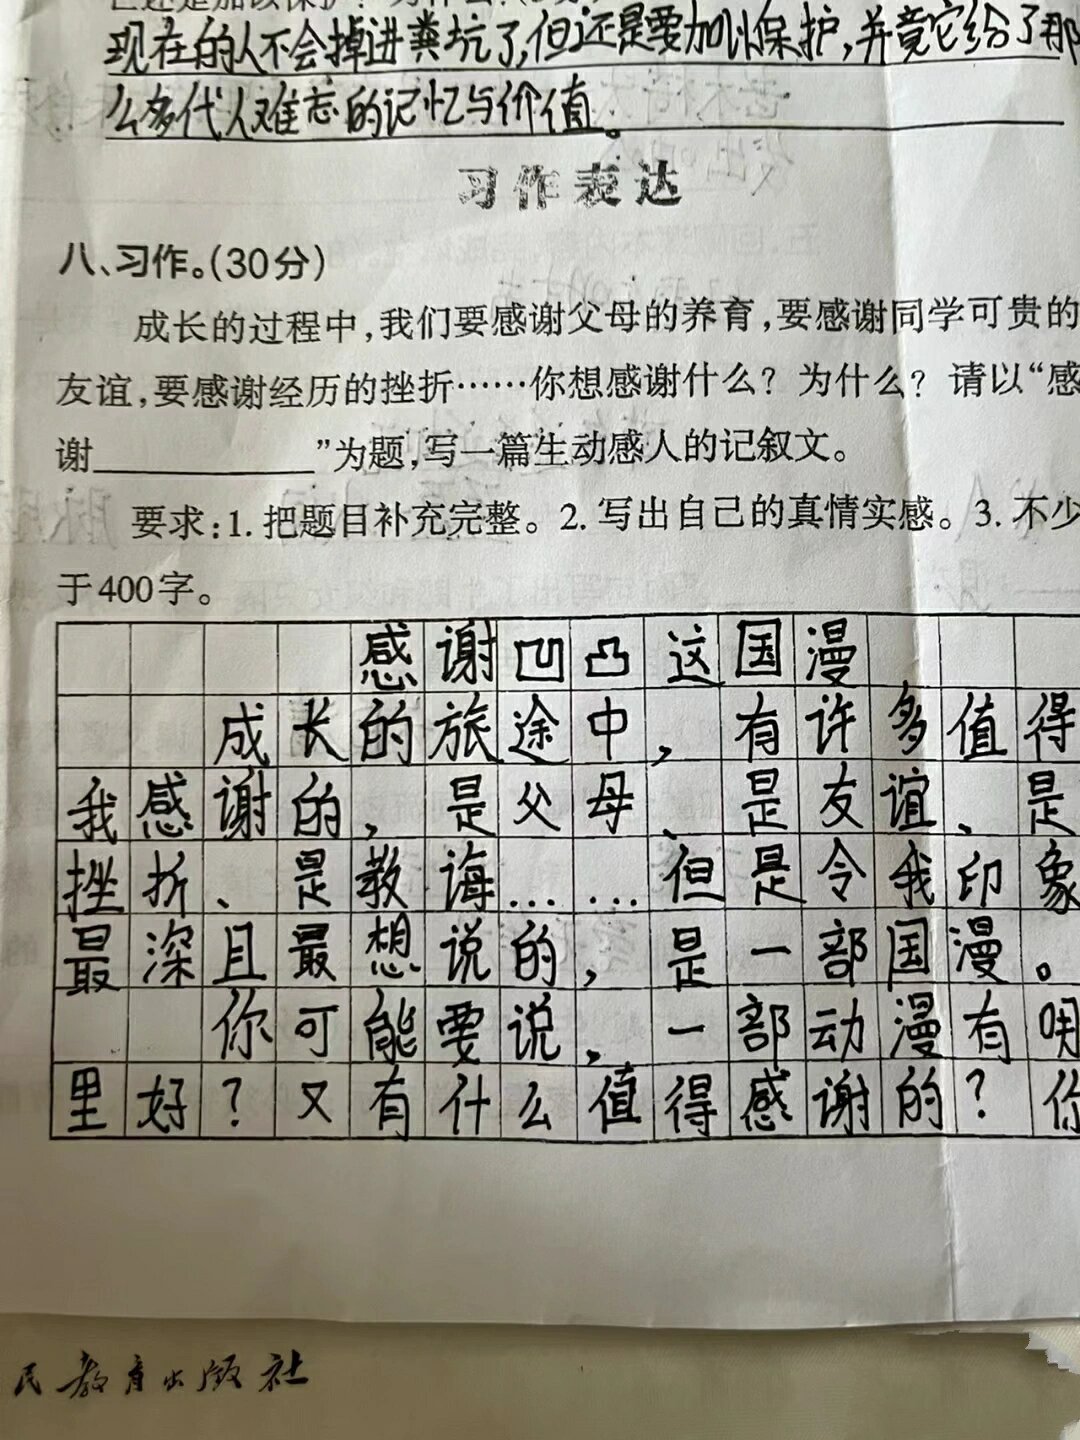 现在的人不会掉进粪坑了,但还是要加以保护,并竟它给了那
么多代人难忘的记忆与价值。
习作表达
八、习作。(30分)
成长的过程中,我们要感谢父母的养育,要感谢同学可贵的
友谊,要感谢经历的挫折……你想感谢什么?为什么?请以“感
谢____________”为题,写一篇生动感人的记叙文。
要求:1.把题目补充完整。2.写出自己的真情实感。3.不少
于400字。
感谢凹凸这国漫
成长的旅途中,有许多值得
我感谢的,是父母、是友谊、是
挫折、是教诲……但是令我印象
最深且最想说的,是一部国漫。
你可能要说,一部动漫有
里好?又有什么值得感谢的?你
民教育出版社